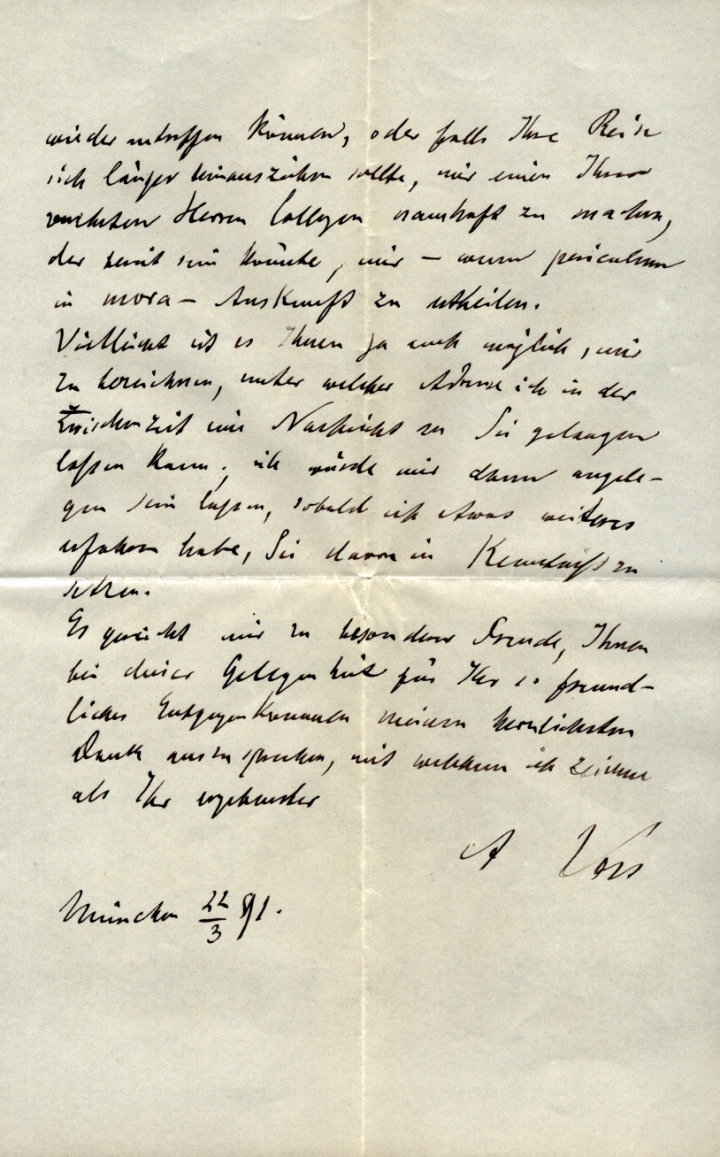 wieder eintreffen können, oder falls Ihre Reise
sich länger hinausziehen sollte, mir einen Ihrer
verehrten Herren Collegen namhaft zu machen,
der bereit sein könnte, mir – wenn periculum
in mora – Auskunft zu ertheilen.
Vielleicht ist es Ihnen ja auch möglich, mir
zu bezeichnen, unter welcher Adresse ich in der
Zwischenzeit eine Nachricht an Sie gelangen
laßen kann; ich würde mir dann angele-
gen sein laßen, sobald ich etwas weiteres
erfahren habe, Sie davon in Kenntniß zu
setzen.
Es gereicht mir zu besonderer Freude, Ihnen
bei dieser Gelegenheit für Ihr so freund-
liches Entgegenkommen meinen herzlichsten
Dank auszusprechen, mit welchem ich zeichne
als Ihr ergebenster
A Voss
München 22/3 91.